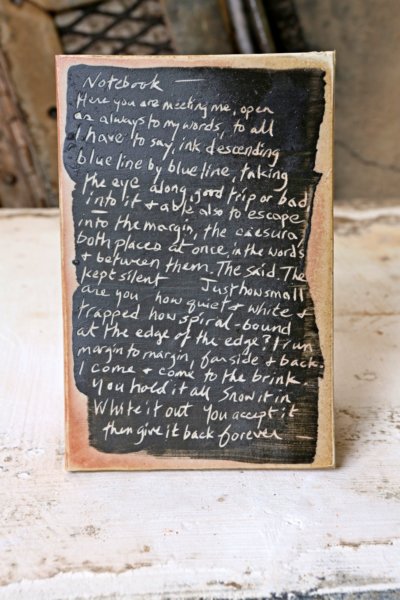 Notebook —
Here you are meeting me, open
as always to my words, to all
I have to say, ink descending
blue line by blue line, taking
the eye along, good trip or bad
into it & able also to escape
into the margin, the caesura,
both places at once, in the words
& between them. The said. The
kept silent Just how small
are you how quiet & white &
trapped how spiral-bound
at the edge of the edge? I run
margin to margin, far side & back.
I come & come to the brink
You hold it all Snow it in
White it out You accept it
then give it back forever —